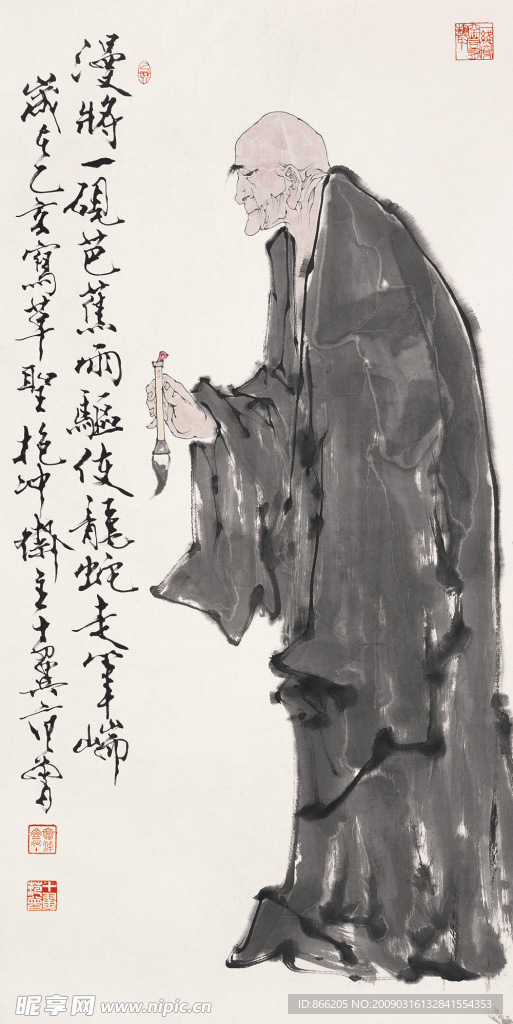 漫將一硯芭蕉雨驅使龍蛇走筆端
歲在乙亥寫草聖抱冲齋主十翼范曾
昵享网 www.nipic.cn
ID:866205 NO:20090316132841554353